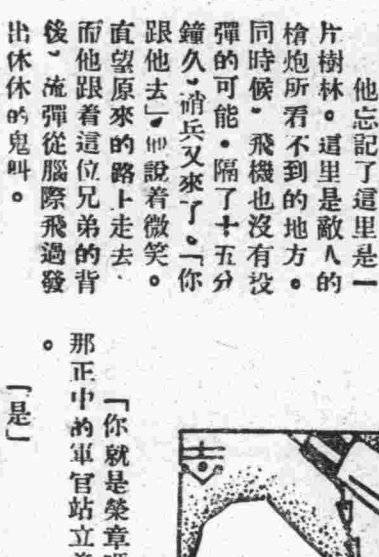 他忘記了這里是一
片樹林。這里是敵人的
槍炮所看不到的地方。
同時候，飛機也沒有投
彈的可能。隔了十五分
鐘久，哨兵又來了。「你
跟他去」，他說着微笑。
直望原來的路上走去．
而他跟着這位兄弟的背
後，流彈從腦際飛過發
出休休的鬼叫。
「你就是榮章
那正中的軍官站立
。
「是」